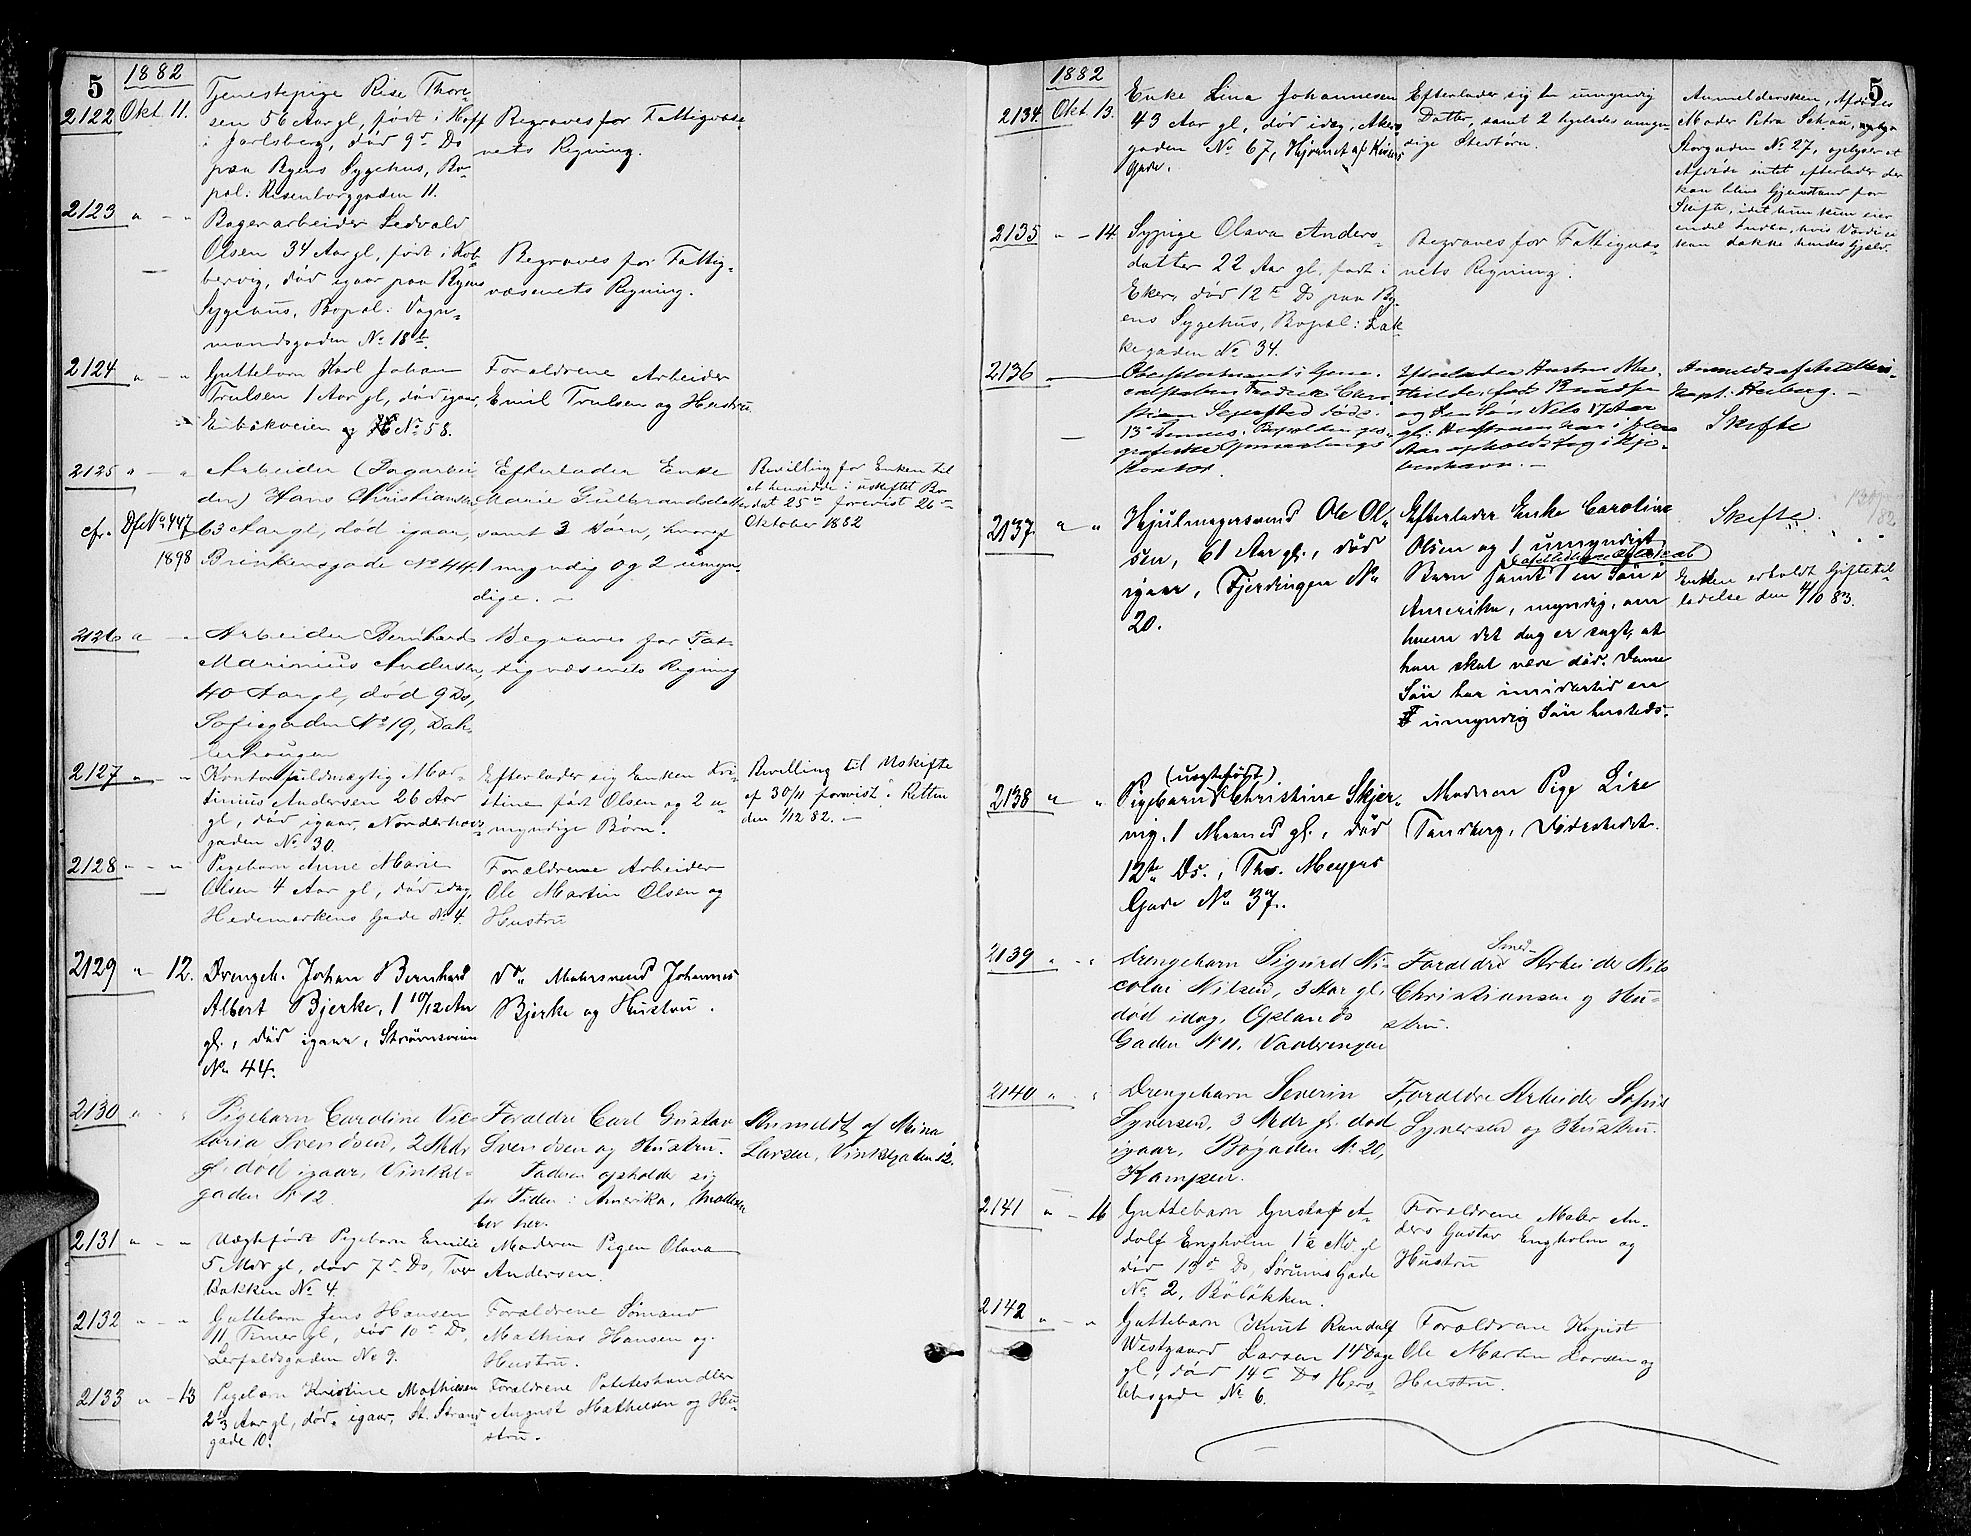 5
1882
2122 Okt 11.
Tjenestepige Thore-
sen 56 Aar gl, født i Hoff
i Jarlsberg, død 9de Ds
paa Byens Sygehus, Bo-
pæl: Rosenborggaden 11.
Begraves for Fattigvæse-
nets Regning.
2123 " - "
Bagerarbeider Sedvald
Olsen 34 Aar gl, født i Kob-
bervig, død igaar paa Byens
Sygehus, Bopæl: Vogn-
mandsgaden No 18b.
Begraves for Fattig-
væsenets Regning.
2124 " - "
Guttebarn Karl Johan
Trulsen 1 Aar gl, død igaar,
Enebakveien No 58.
Forældrene Arbeider
Emil Trulsen og Hustru
2125 " - "
cfr. Df No 447
1898
Arbeider (Dagarbei-
der) Hans Christiansen
63 Aar gl, død igaar,
Brinkensgade No 44.
Efterlader Enke
Marie Gulbrandsdatter
samt 3 Børn, hvoraf
1 myndig og 2 umyn-
dige. -
Bevilling for Enken til
at hensidde i uskiftet Bo
dat 25de forevist 26de
Oktober 1882
2126 " - "
Arbeider Bernhard
Marinius Andersen,
40 Aar gl, død 9 Ds,
Sofiegaden No 19, Bak-
kerhougen
Begraves for Fat-
tigvæsenets Regning
2127 " - "
Kontorfuldmægtig Mar-
tinius Andersen 26 Aar
gl, død igaar, Norderhovs-
gaden No 30.
Efterlader sig Enken Kri-
stine født Olsen og 2 u-
myndige Børn.
Bevilling til Uskifte
af 30/11 forevist i Retten
den 1/12 82. -
2128 " - "
Pigebarn Anne Marie
Olsen 4 Aar gl, død idag,
Hedemarkens Gade No 4.
Forældrene Arbeider
Ole Martin Olsen og
Hustru
2129 " 12.
Drengeb. Johan Bernhard
Albert Bjerke, 1 10/12 Aar
gl., død igaar, Strømsveien
No 44.
Do Malersvend Johannes
Bjerke og Hustru.
2130 " "
Pigebarn Caroline Vic-
toria Svendsen, 2 Mdr
gl. død igaar, Vinkel-
gaden No 12
Forældre Carl Gustav
Svendsen og Hustru.
Faderen opholder sig
for Tiden i Amerika, Moderen
bor her.
Anmeldt af Mina
Larsen, Vinkelgaden 12.
2131 " - "
Uægtefødt Pigebarn Emilie
5 Mdr gl, død 7de Ds, Tver
Bakken No 4.
Moderen Pigen Olava
Andersen.
2132 " - "
Guttebarn Jens Hansen
11 Timer gl, død 10de Ds,
Lerfaldsgaden No 9.
Forældrene Sømand
Mathias Hansen og
Hustru.
2133 " - 13
Pigebarn Kristine Mathiesen
2 1/3 Aar gl, død igaar, St. Strand
gade 10.
Forældrene Poteteshandler
August Mathiesen og Hu-
stru.
1882
5
2134 Okt 13.
Enke Lina Johannesen
43 Aar gl, død idag, Akers
gaden No 67, Hjørnet af
Gade.
Efterlader sig umyndig
Datter, samt 2 ligeledes umyn-
dige Stedbørn.
Anmeldersken, Afdødes
Moder Petra
Storgaden No 27, oplyser at
Afdøde intet efterlader der
kan blive Gjenstand for
Skifte, idet hun kun eier
endel Indbo, hvis Værdi ei
kan dække hendes Gjæld.
2135 " - 14
Sypige Olava Anders-
datter 22 Aar gl. født i
Eker, død 12te Ds paa By-
ens Sygehus, Bopæl: Lak-
kegaden No 34.
Begraves for Fattigvæse-
nets Regning.
2136
Oberstlieutenant i Gene-
ralstaben Fredrik Chri-
stian Sejersted døde
13de dennes. Bopæl den geo-
grafiske Opmaalings
Kontor.
Efterlader Hustru Ma-
thilde, født
og den Søn Nils 17 Aar
gl.
Aar opholdt sig i Kjø-
benhavn. -
Anmeldt af Artilleri-
kapt. Heiberg. -
Skifte
2137 " "
Hjulmagersvend Ole Ol-
sen, 61 Aar gl., død
igaar, Fjerdingen No
20.
Efterlader Enke Caroline
Olsen og 1 umyndigt
Barn samt 1 en Søn i
Amerika, myndig, om
hvem det dog er sagt, at
han skal være død. Denne
Søn har imidlertid en
umyndig Søn husteds.
Skifte.
Enken erholdt Giftetil-
ladelse den 4/10 83.
2138 " "
(uægtefødt)
Pigebarn Christine Skjer-
vig, 1 Maaned gl., død
12te Ds., Ths. Meyers
Gade No 37.
Moderen Pige Lise
Tandberg, Dødsstedet.
2139 " "
Drengebarn Sigurd Ni-
colai Nilsen, 3 Aar gl.
død idag, Oplands
Gaden No 11, Vaalerengen
Smed-
Forældre Arbeider Nils
Christiansen og Hu-
stru.
2140 " "
Drengebarn Severin
Syversen, 3 Mdr gl. død
igaar, Bøgaden No 20,
Kampen.
Forældre Arbeider Sofus
Syversen og Hustru.
2141 " - 16
Guttebarn Gustaf A-
dolf Engholm 1 1/2 Md. gl
død 13de Ds, Sørumsgade
No 2, Bøløkken.
Forældrene Maler An-
ders Gustav Engholm og
Hustru
2142 " - "
Guttebarn Knut Randolf
Westgaard Larsen 14 Dage
gl, død 14de Ds Hers-
lebsgade No 6.
Forældrene Kopist
Ole Martin Larsen og
Hustru.